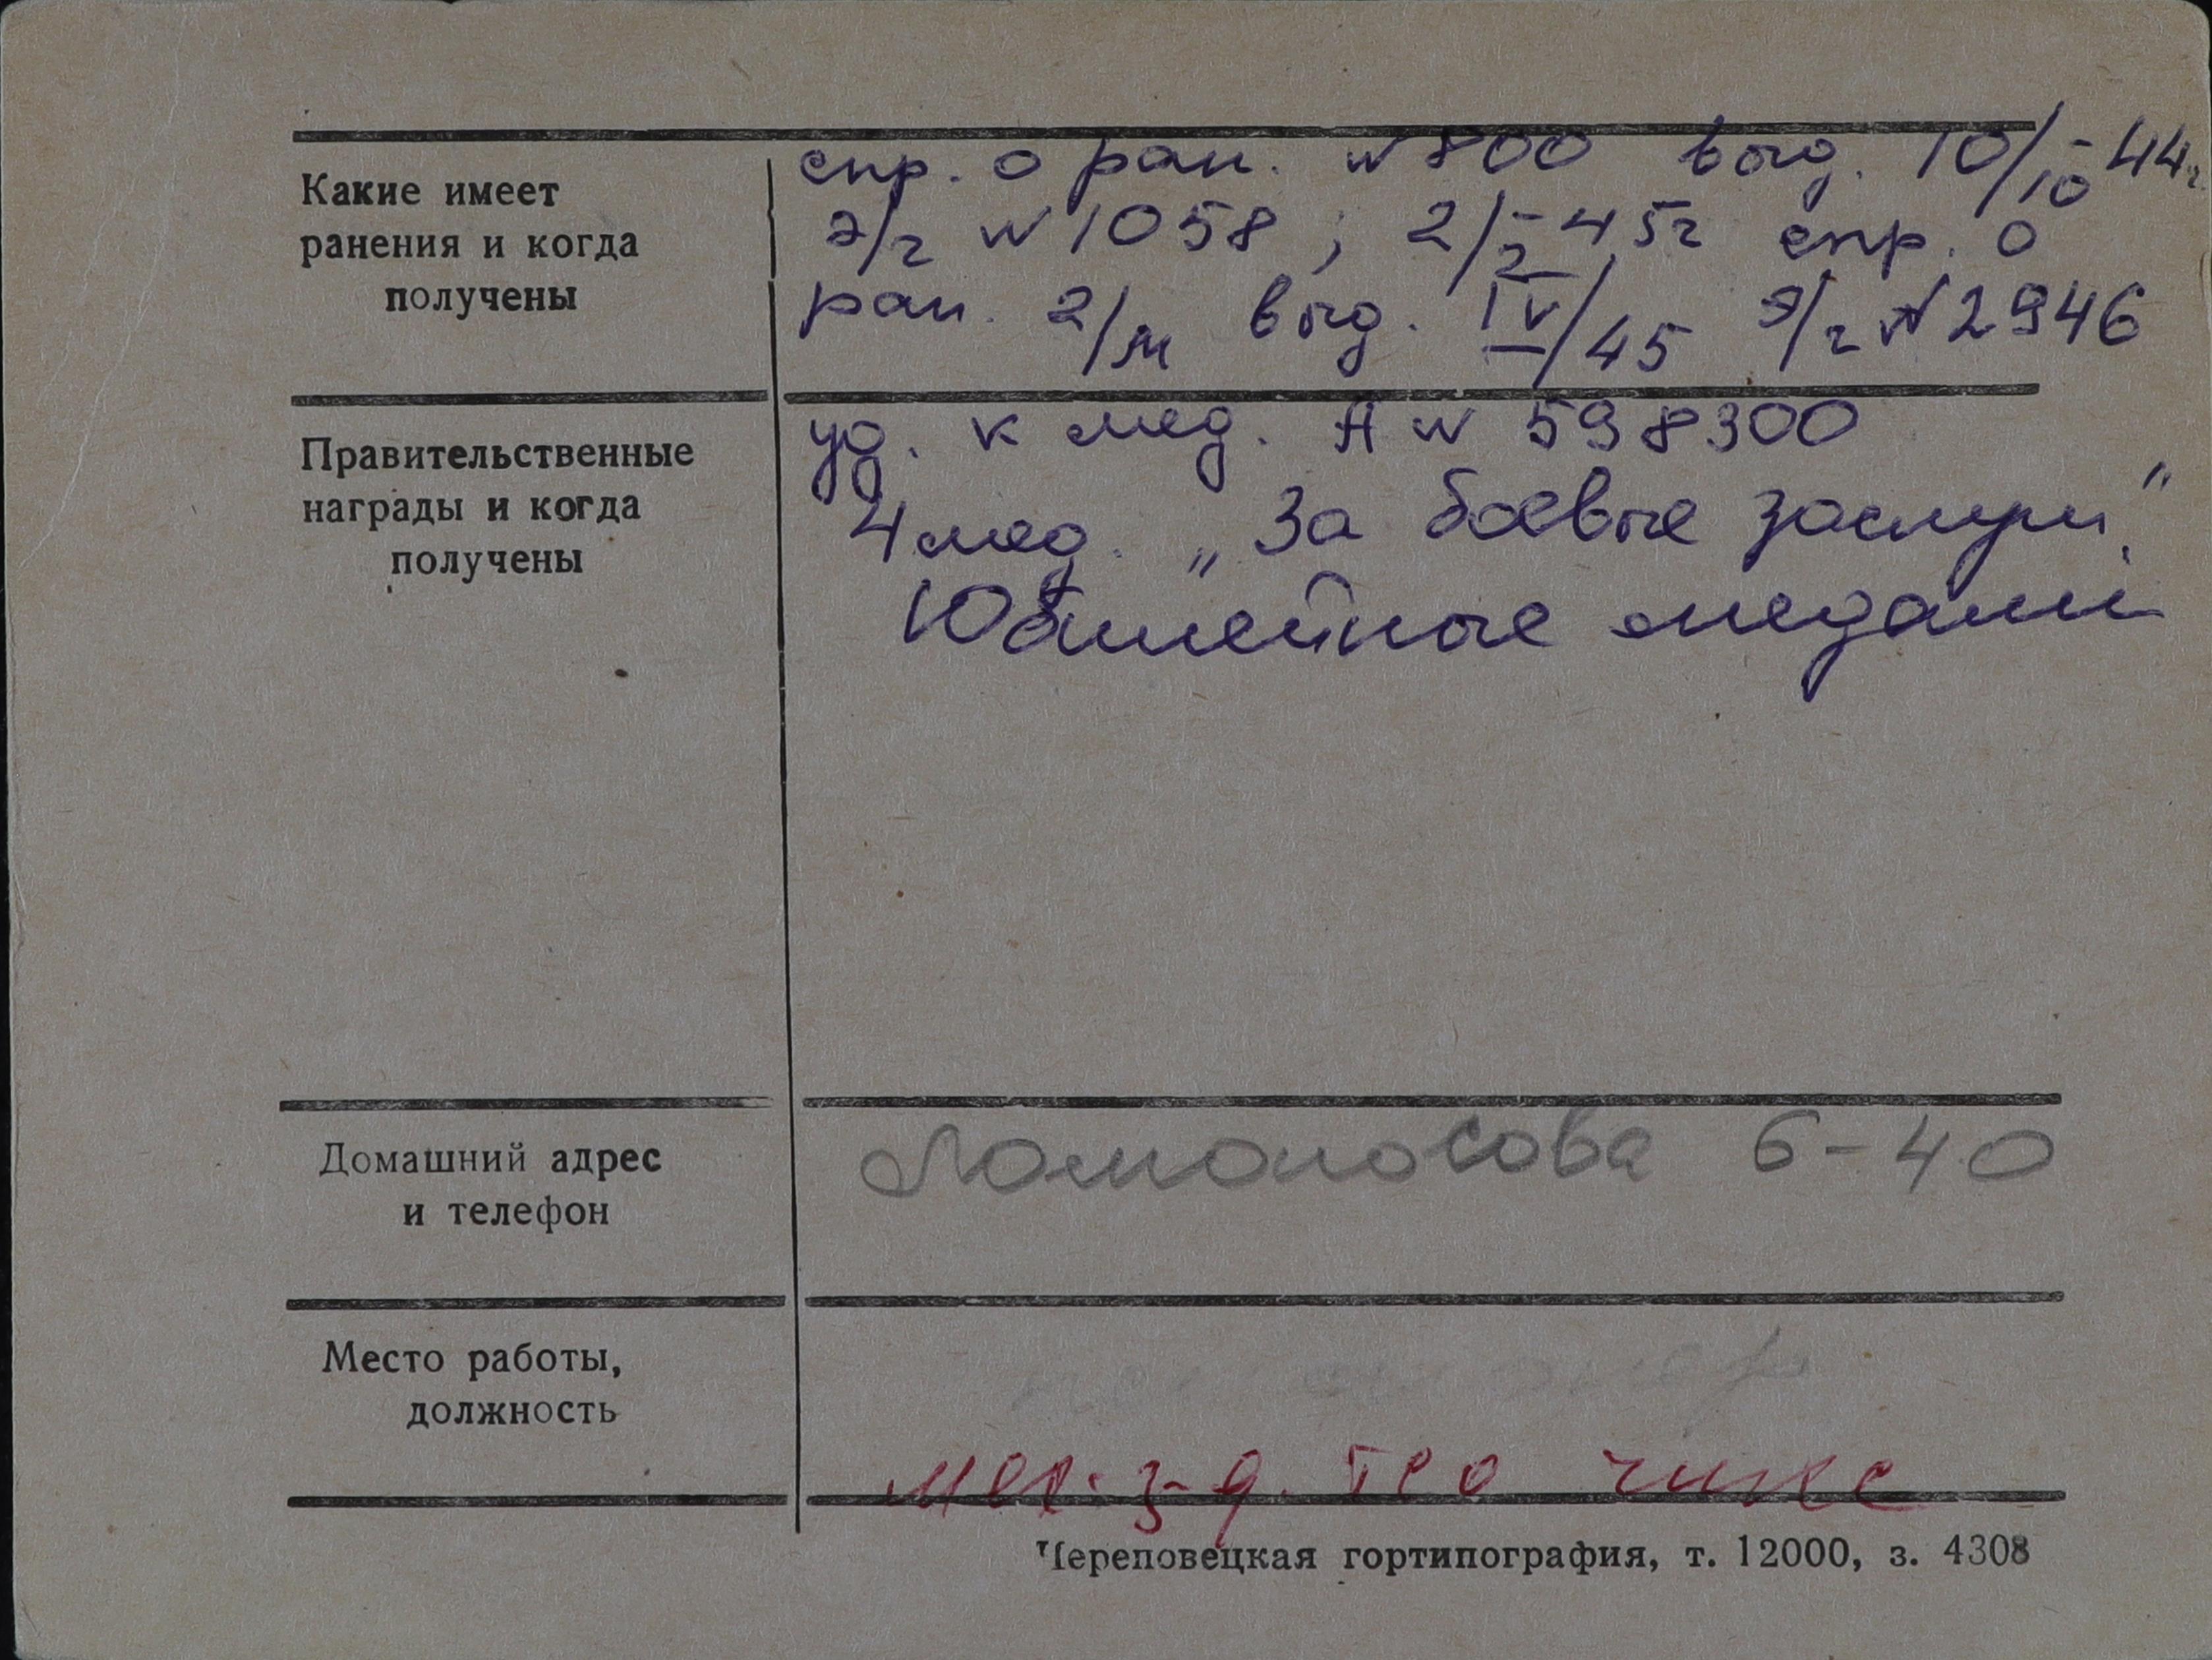 Какие имеет
ранения и когда
получены
спр. о ран. № 800 выд. 10/10-44г.
э/г № 1058; 2/2-45г спр. о
ран. 2/м выд. IV/45 э/г № 2946
Правительственные
награды и когда
получены
уд. к мед. А № 598300
4 мед. „За боевые заслуги"
Юбилейные медали
Домашний адрес
и телефон
Ломоносова 6-40
Место работы,
должность
мех. з-д.
Череповецкая гортипография, т. 12000, з. 4308